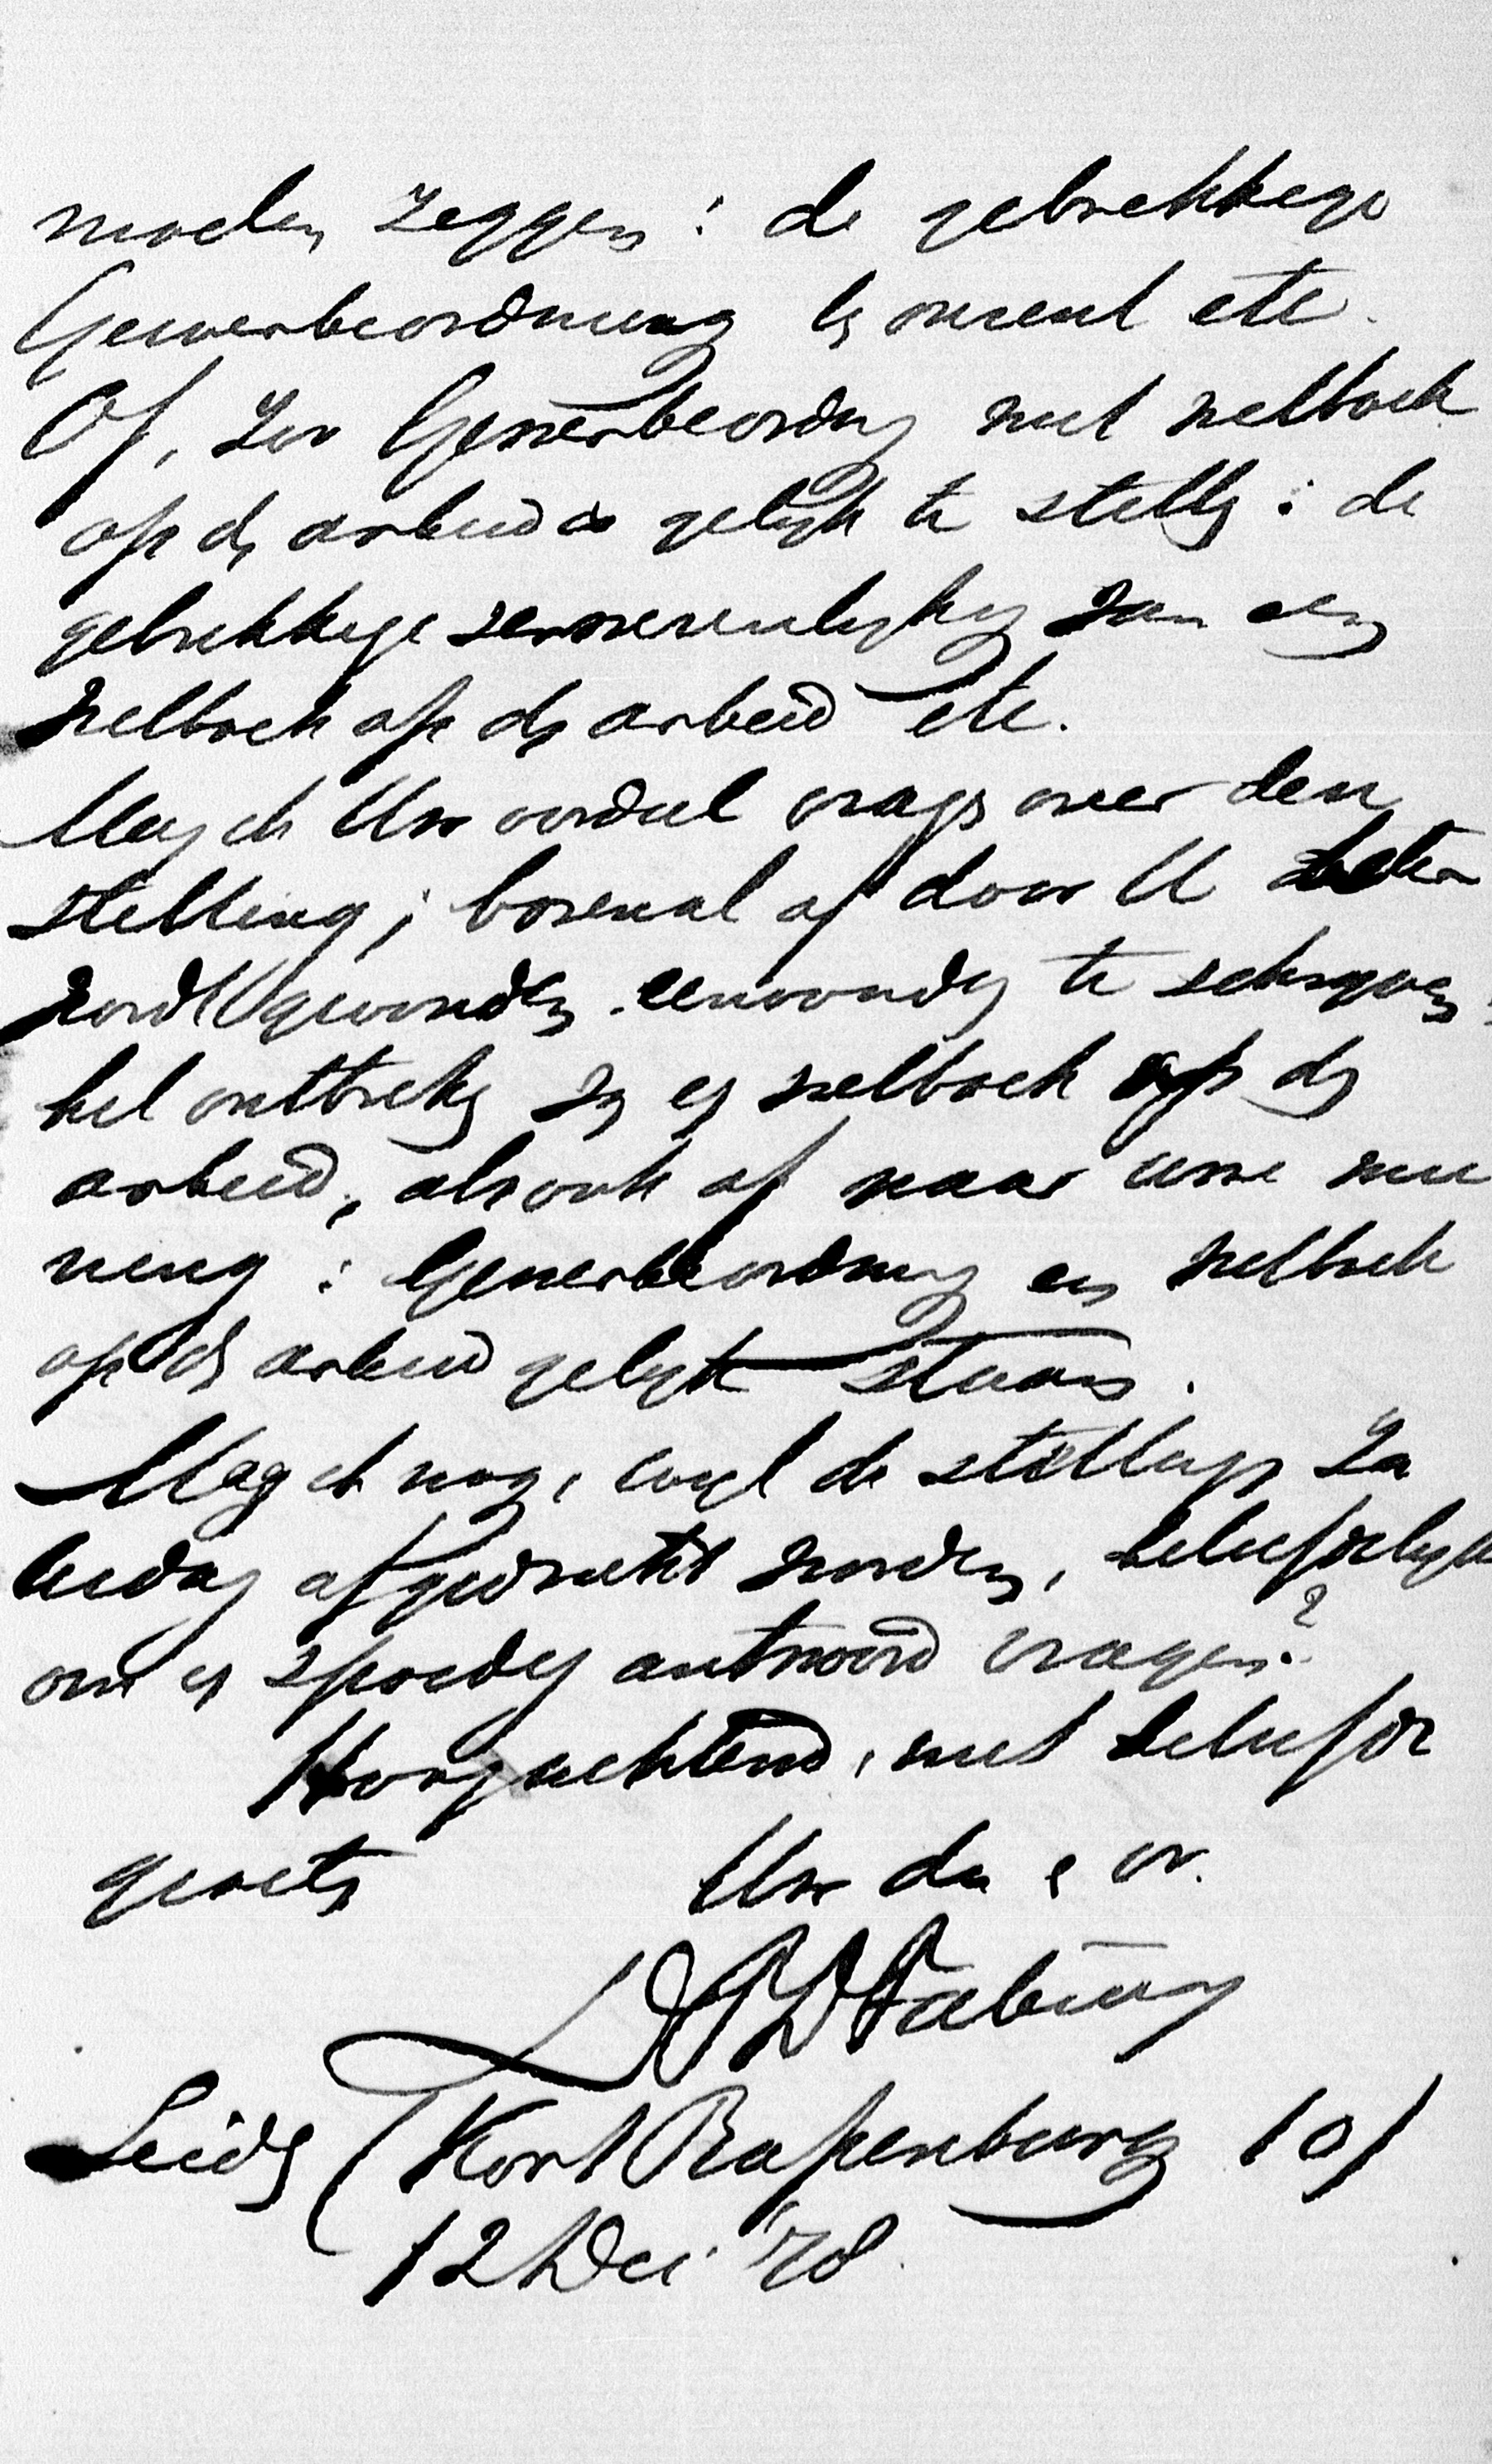 moeten zeggen: de gebrekkige
Gewerbeordnung bij onrent etc.
Of, zoo Gewerbeordng met wetboek
op dn arbeid is gelijk te stelln: de
gebrekkige verwezenlijking van een
wetboek op dn arbeid etc.
Mag ik Uw oordeel vragn over deen
stelling; bovenal of door U beter
wordt gevonden eenvoudig te schrijven:
het ontbrekn van en wetboek op dn
arbeid, alsook of naar uwe mee
ning: Gewerbeordnung en wetboek
op dn arbeid gelijk staan.
Mag ik nog, wijl de stellingn Za
terdag afgedrukt worden, beleefdelijk
om en spoedig antwoord vragen?
Hoogachtend, met beleefde
groetn Uw dn e vr.
DPD Fabius
Leidn Kort Rapenburg 101
12 Dec '78.